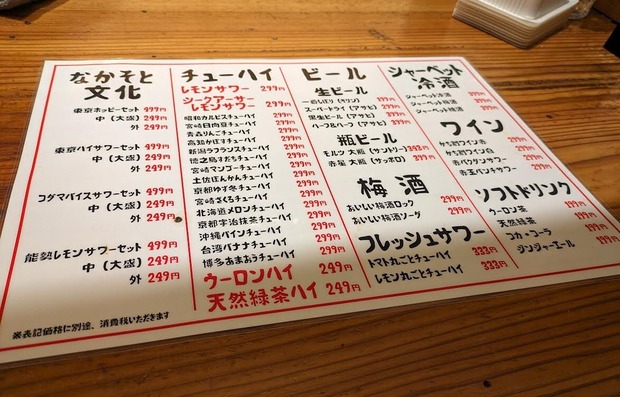 なかそと
文化
東京ホッピーセット 499円
中(大盛) 249円
外 249円
東京ハイサワーセット 499円
中(大盛) 249円
外 249円
コダマバイスサワーセット 499円
中(大盛) 249円
外 249円
能勢レモンサワーセット 499円
中(大盛) 249円
外 249円
※表記価格に別途、消費税いただきます
チューハイ
レモンサワー 299円
シークアーサー
レモンサワー 299円
昭和カルピスチューハイ 299円
宮崎日向夏チューハイ 299円
青森りんごチューハイ 299円
高知かぼすチューハイ 299円
新潟ラフランスチューハイ 299円
徳之島すだちチューハイ 299円
宮崎マンゴーチューハイ 299円
土佐ぽんかんチューハイ 299円
京都ゆず冬チューハイ 299円
宮崎さくらチューハイ 299円
北海道メロンチューハイ 299円
京都宇治抹茶チューハイ 299円
沖縄パインチューハイ 299円
台湾バナナチューハイ 299円
博多あまおうチューハイ 299円
ウーロンハイ 249円
天然緑茶ハイ 249円
ビール
生ビール
一番しぼり(キリン) 399円
スーパードライ(アサヒ) 399円
黒生ビール(アサヒ) 399円
ハーフ&ハーフ(アサヒ) 399円
瓶ビール
モルツ 大瓶(サントリー)
赤星 大瓶(サッポロ)
梅酒
おいしい梅酒ロック 299円
おいしい梅酒ソーダ 299円
フレッシュサワー
トマト丸ごとチューハイ 333円
レモン丸ごとチューハイ 333円
シャーベット
冷酒
シャーベット冷酒 399円
シャーベット梅酒 399円
シャーベット焼酎 399円
ワイン
かち割ワイン赤 299円
かち割ワイン白 299円
赤バクダンサワー
赤玉パンチサワー
ソフトドリンク
ウーロン茶 199円
天然緑茶 199円
コカ・コーラ 199円
ジンジャーエール 199円